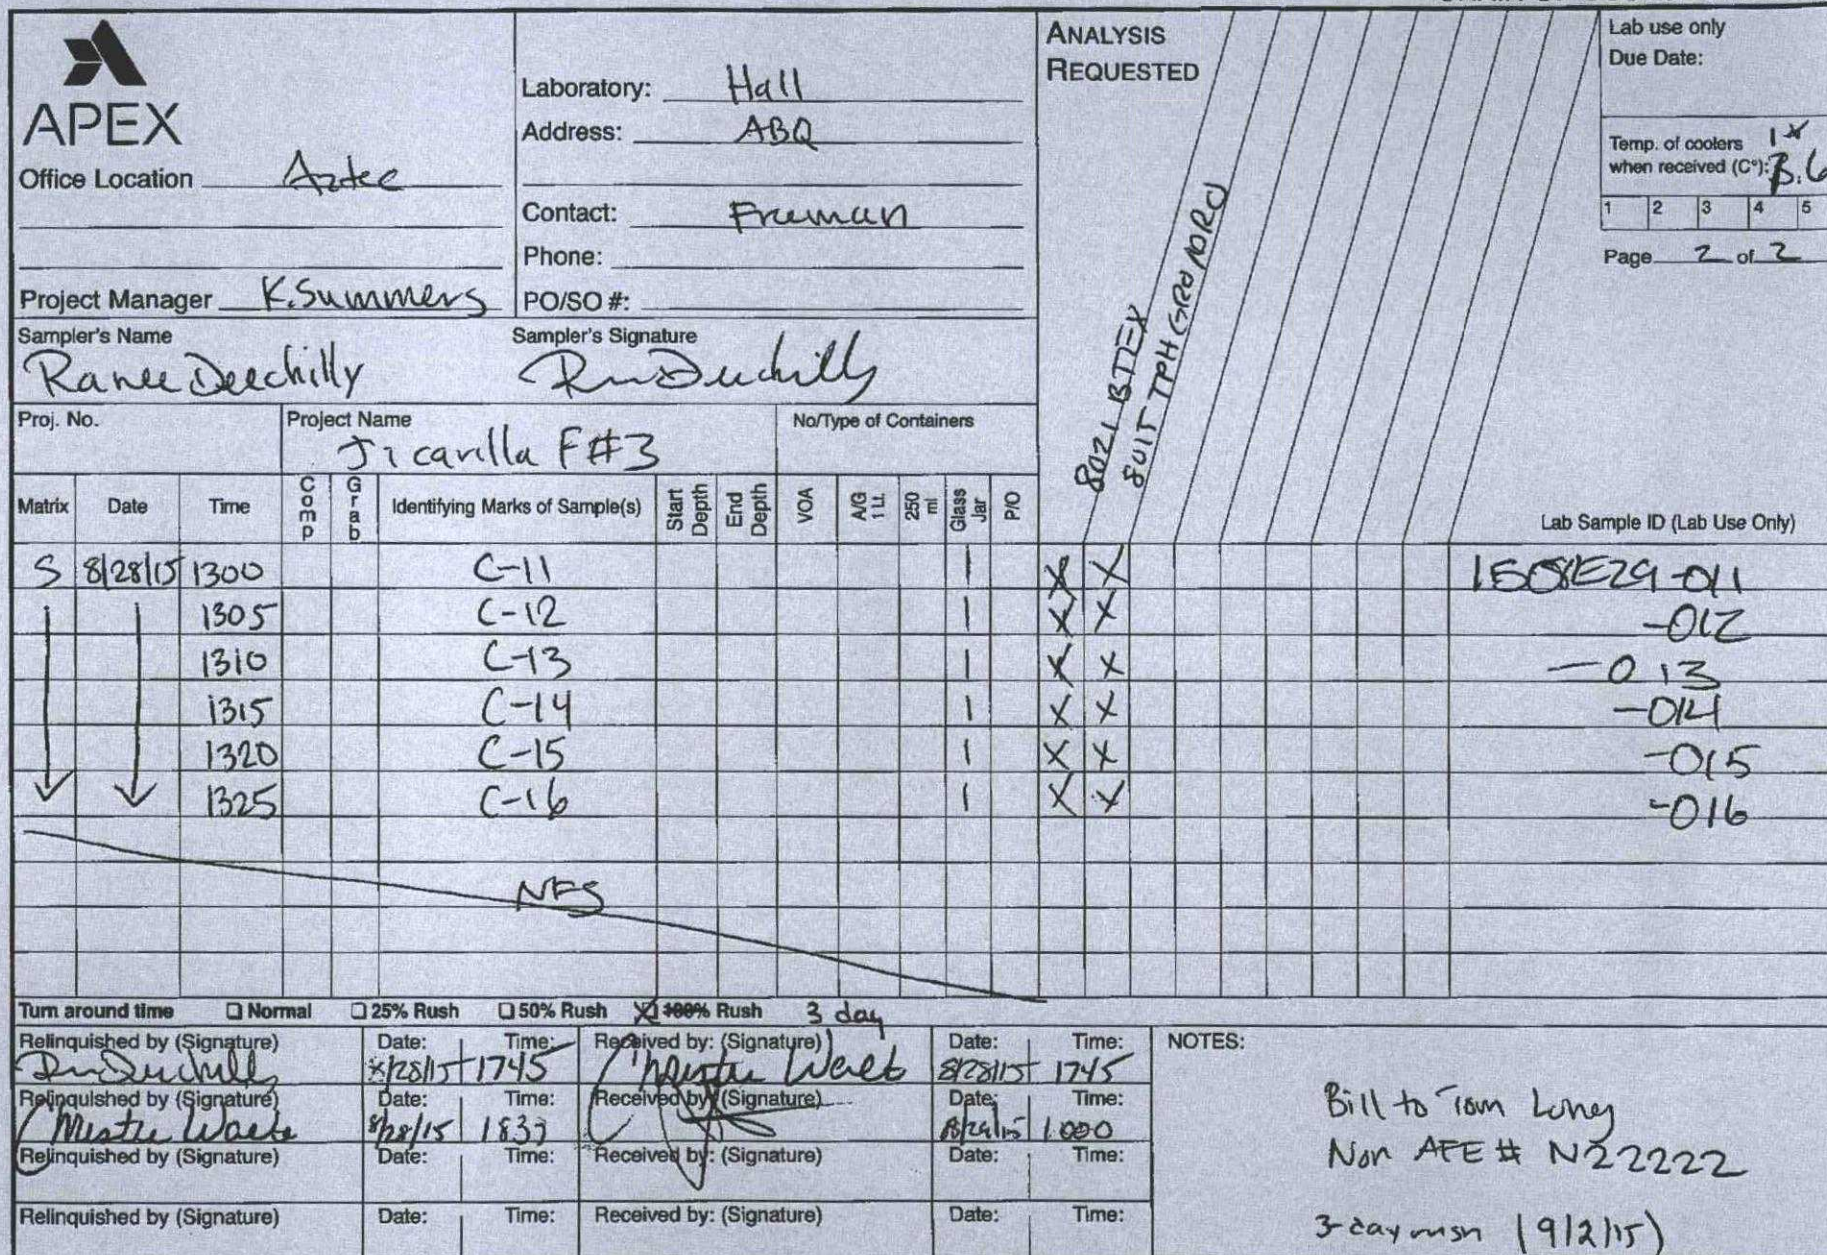 APEX
Office Location Aztec
Project Manager K. Summers
Laboratory: Hall
Address: ABQ
Contact: Freeman
Phone:
PO/SO #:
Sampler's Name
Ranee Deechilly
Sampler's Signature
ANALYSIS
REQUESTED
8021 BTEX
8015 TPH GRO/DRO
Lab use only
Due Date:
Temp. of coolers
when received (C°):
1 2 3 4 5
Page 2 of 2
Proj. No.
Project Name
Jicarilla F#3
No/Type of Containers
Matrix Date Time Comp Grab Identifying Marks of Sample(s) Start Depth End Depth VOA A/G 1 Lt. 250 ml Glass Jar P/O Lab Sample ID (Lab Use Only)
S 8/28/15 1300 C-11 1 X X 1508E29-011
1305 C-12 1 X X -012
1310 C-13 1 X X -013
1315 C-14 1 X X -014
1320 C-15 1 X X -015
1325 C-16 1 X X -016
NFS
Turn around time Normal 25% Rush 50% Rush X 100% Rush 3 day
Relinquished by (Signature) Date: 8/28/15 Time: 1745 Received by: (Signature) Date: 8/28/15 Time: 1745
Relinquished by (Signature) Date: 8/28/15 Time: Received by: (Signature) Date: Time: 1000
Relinquished by (Signature) Date: Time: Received by: (Signature) Date: Time:
Relinquished by (Signature) Date: Time: Received by: (Signature) Date: Time:
NOTES:
Bill to Tom Long
Non AFE # N22222
(9/2/15)